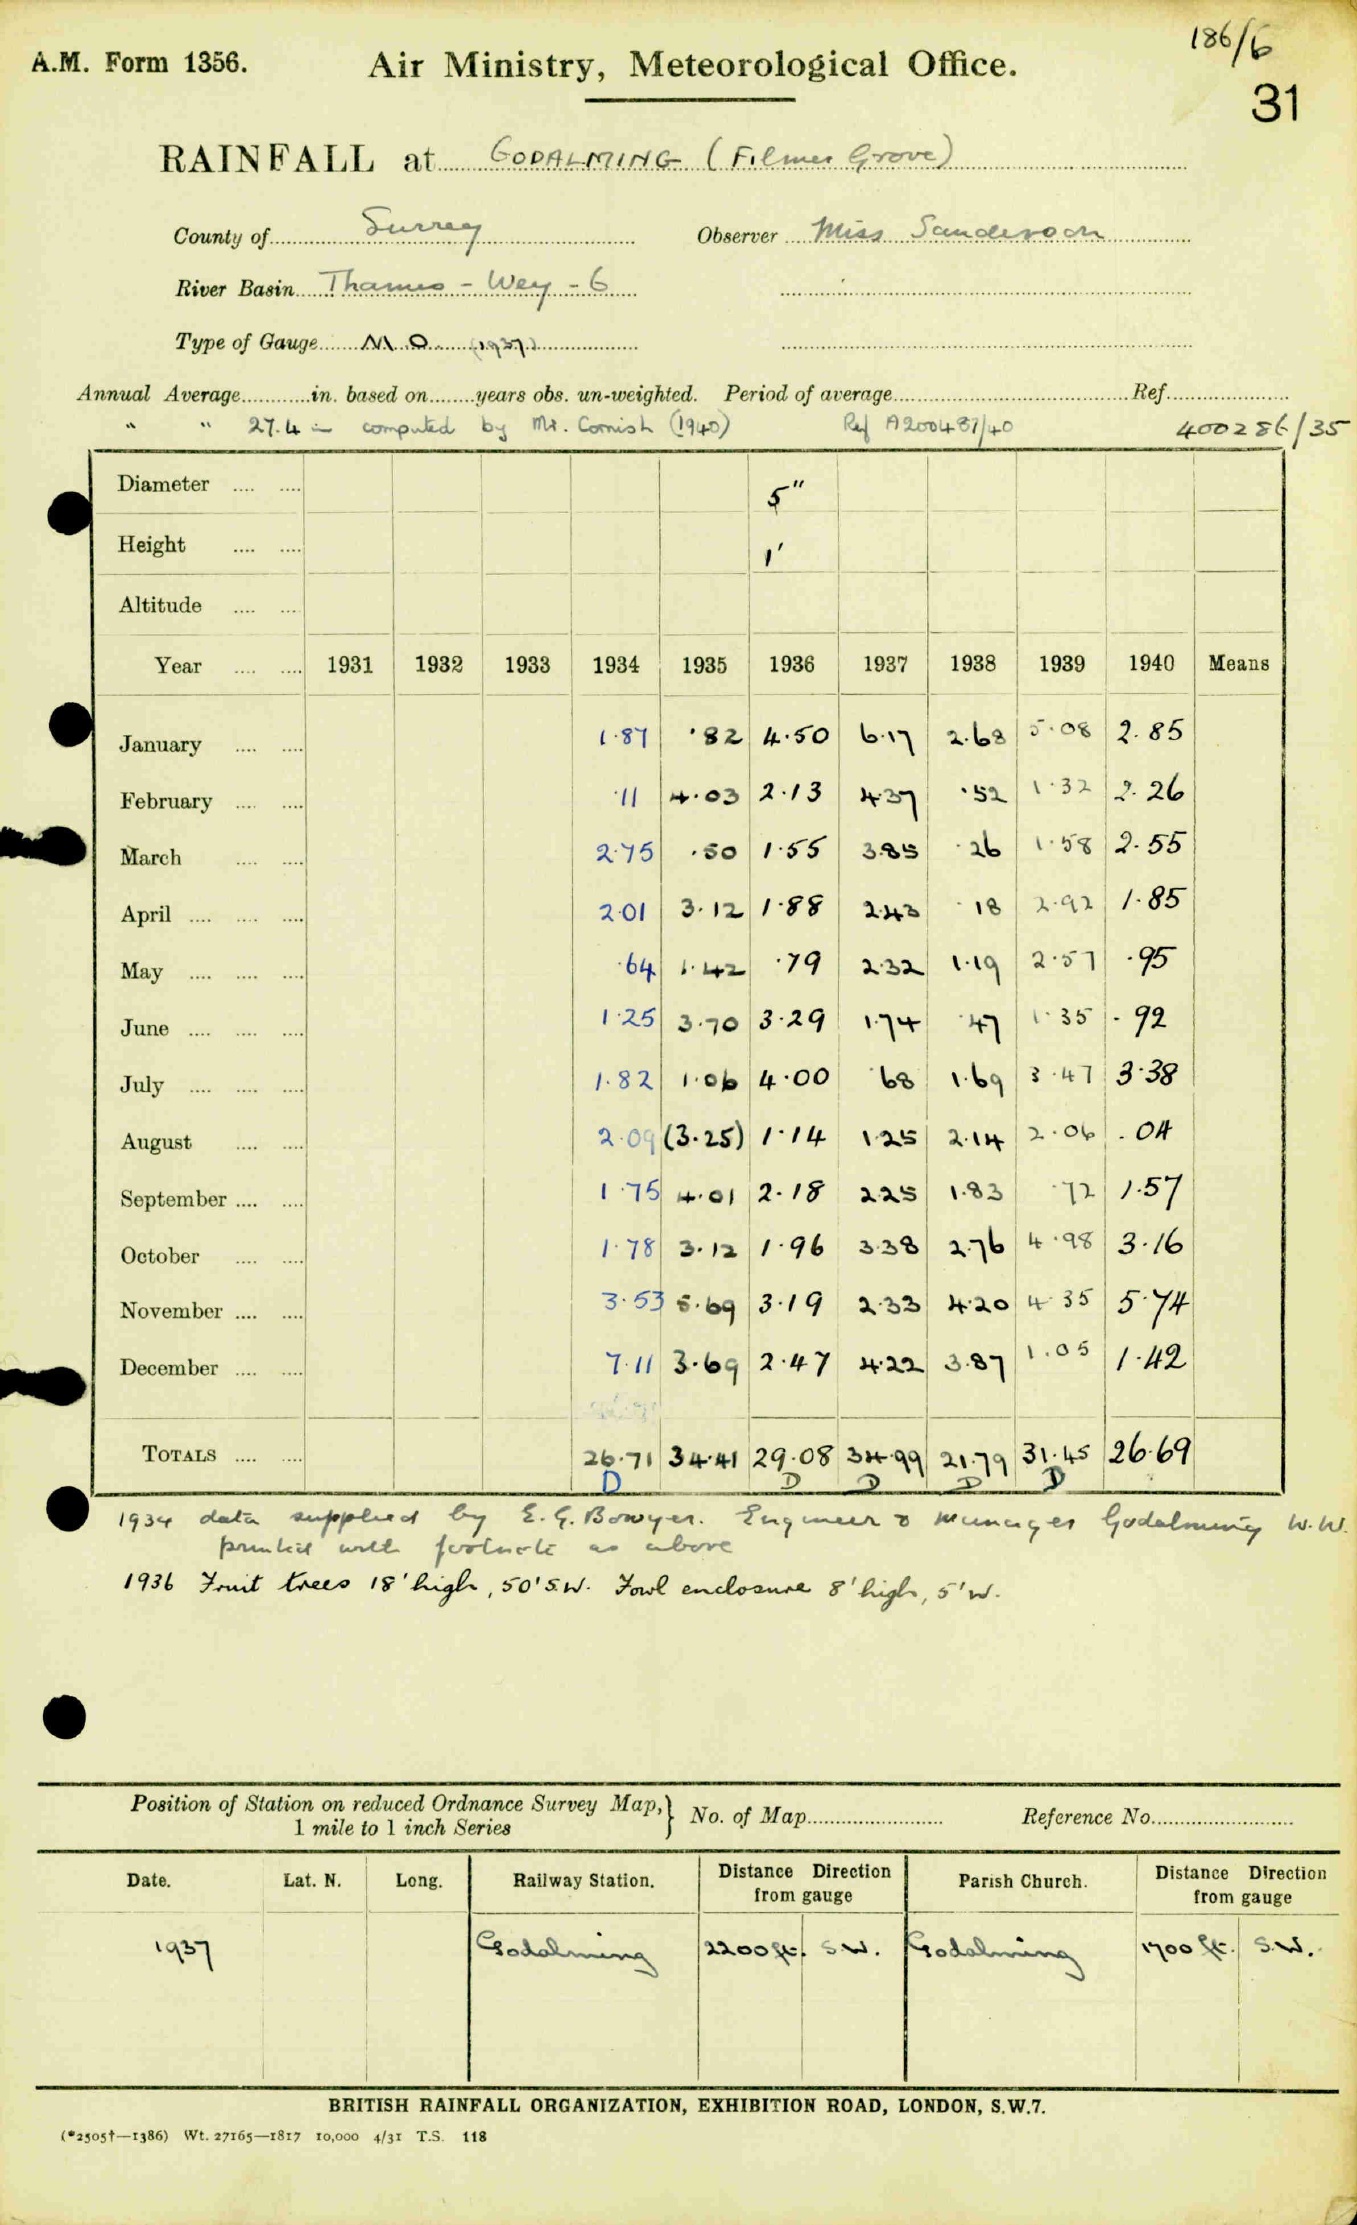 186/6
A.M. Form 1356. Air Ministry, Meteorological Office.
31
RAINFALL at GODALMING (Filmer Grove)
County of Surrey Observer Miss Sanderson
River Basin Thames - Wey - 6
Type of Gauge M.O. (1937)
Annual Average in. based on years obs. un-weighted. Period of average Ref.
" " 27.4 in computed by Mr. Cornish (1940) Ref A200487/40 400286/35
Diameter 5"
Height 1'
Altitude
Year 1931 1932 1933 1934 1935 1936 1937 1938 1939 1940 Means
January 1.87 .82 4.50 6.17 2.68 5.08 2.85
February .11 4.03 2.13 4.37 .52 1.32 2.26
March 2.75 .50 1.55 3.85 .26 1.58 2.55
April 2.01 3.12 1.88 2.43 .18 2.92 1.85
May .64 1.42 .79 2.32 1.19 2.57 .95
June 1.25 3.70 3.29 1.74 .47 1.35 .92
July 1.82 1.06 4.00 .68 1.69 3.47 3.38
August 2.09 (3.25) 1.14 1.25 2.14 2.06 .04
September 1.75 4.01 2.18 2.25 1.83 .72 1.57
October 1.78 3.12 1.96 3.38 2.76 4.98 3.16
November 3.53 5.69 3.19 2.33 4.20 4.35 5.74
December 7.11 3.69 2.47 4.22 3.87 1.05 1.42
TOTALS 26.71 34.41 29.08 34.99 21.79 31.45 26.69
D D D D D
1934 data supplied by E.G. Bowyer. Engineer & Manager Godalming W.W.
printed with footnote as above
1936 Fruit trees 18' high, 50' S.W. Fowl enclosure 8' high, 5' W.
Position of Station on reduced Ordnance Survey Map, 1 mile to 1 inch Series } No. of Map Reference No.
Date. Lat. N. Long. Railway Station. Distance Direction from gauge Parish Church. Distance Direction from gauge
1937 Godalming 2200 ft. S.W. Godalming 1700 ft. S.W.
BRITISH RAINFALL ORGANIZATION, EXHIBITION ROAD, LONDON, S.W.7.
(*2505†—1386) Wt. 27165—1817 10,000 4/31 T.S. 118